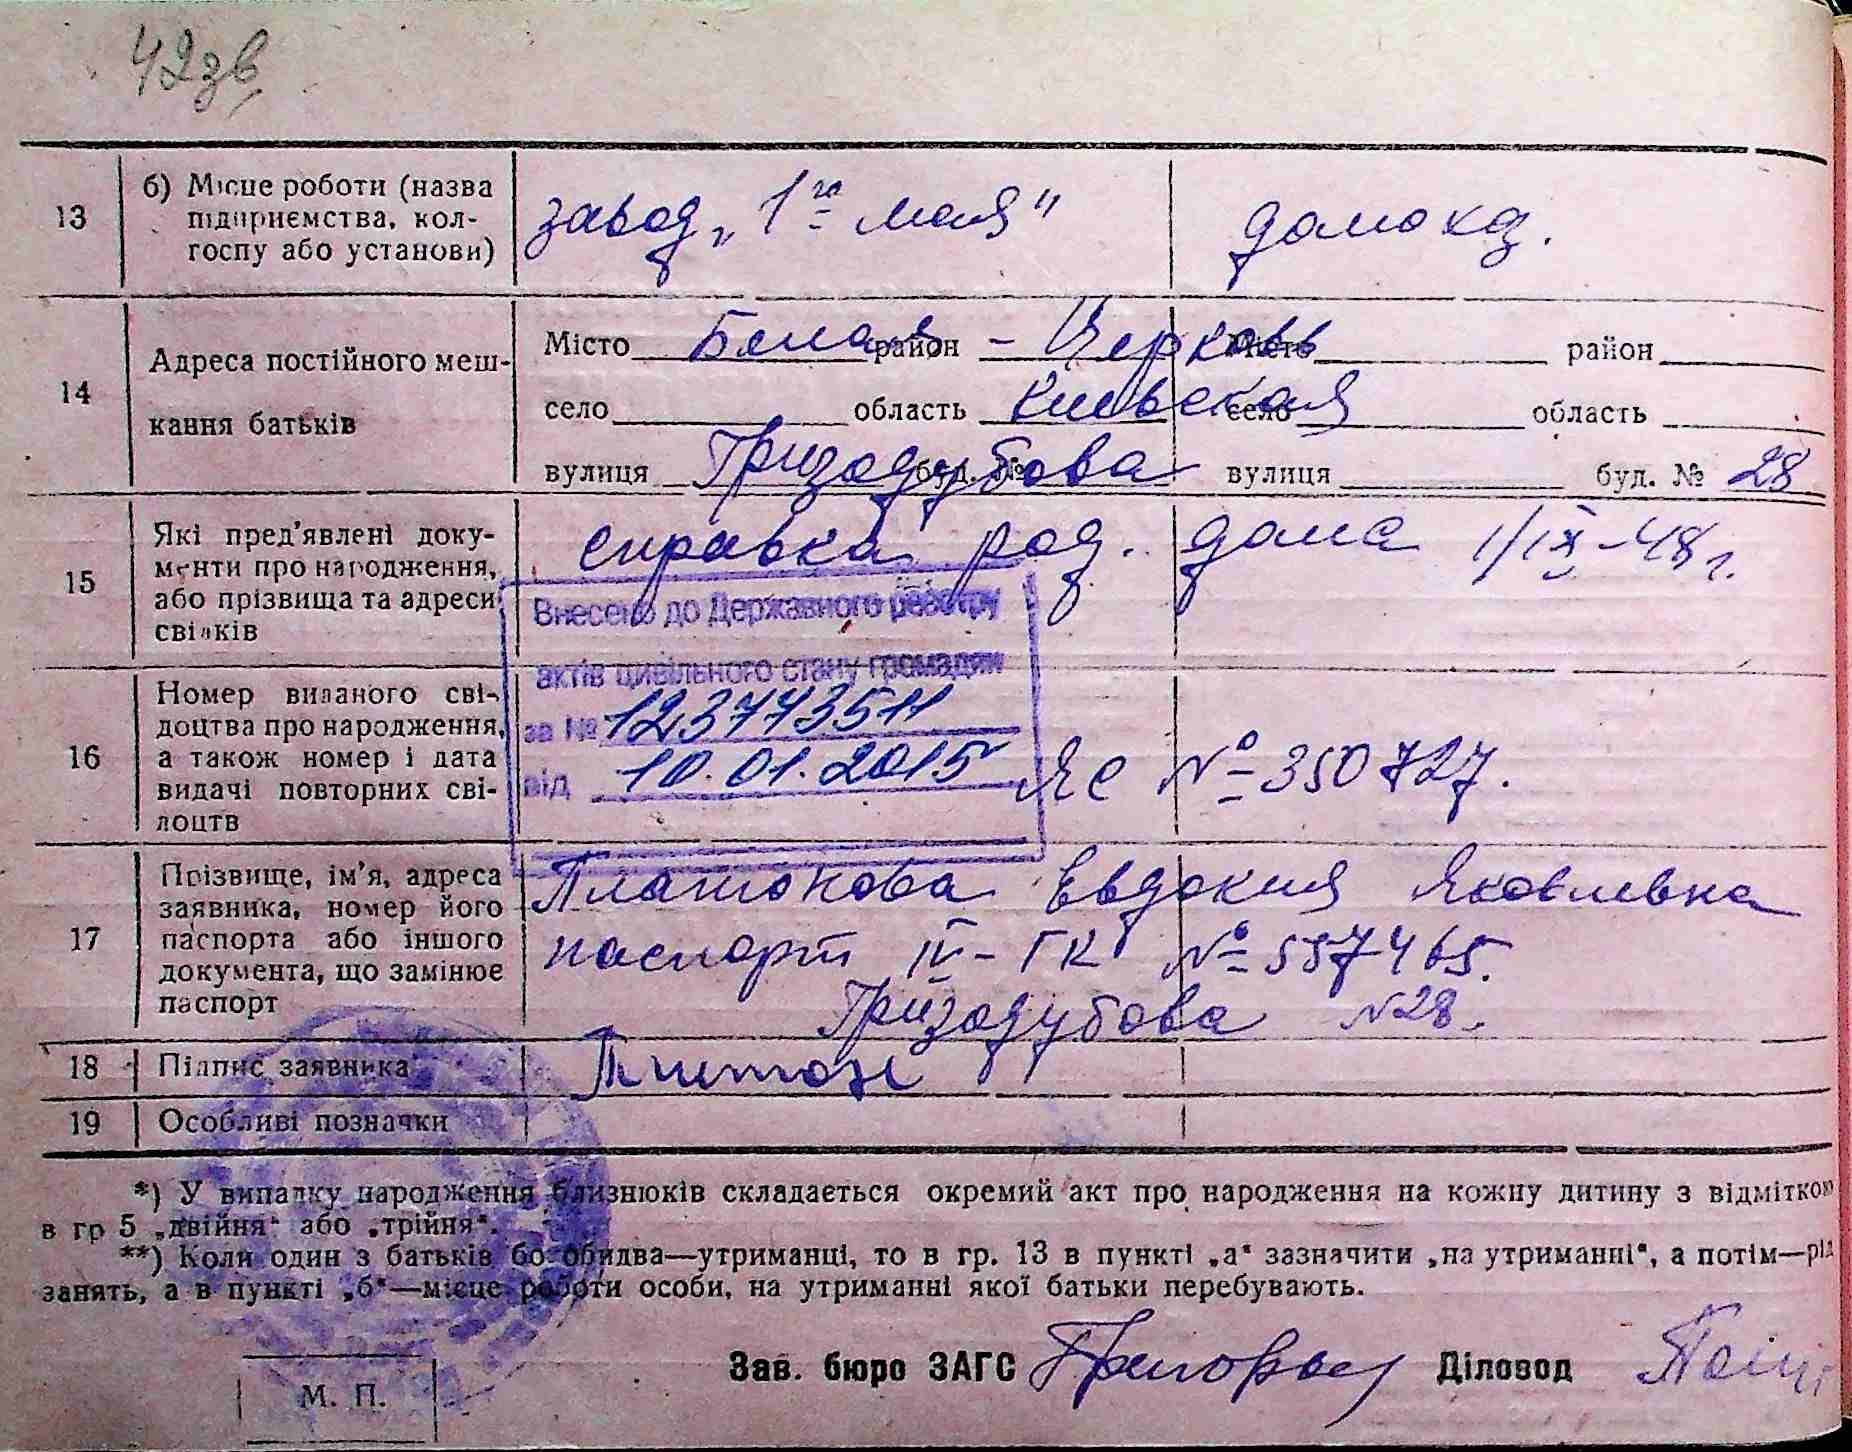 42зв
13
б) Місце роботи (назва
підприємства, кол-
госпу або установи)
завод „1го мая"
домохоз.
14
Адреса постійного меш-
кання батьків
Місто Белая район - Церковь Місто район
село область Киевская село область
вулиця Гризодубова буд. № вулиця буд. № 28
15
Які пред'явлені доку-
менти про народження,
або прізвища та адреси
свідків
справка род. дома 1/IX-48 г.
Внесено до Державного реєстру
актів цивільного стану громадян
за № 12377351
від 10.01.2015
16
Номер виданого сві-
доцтва про народження,
а також номер і дата
видачі повторних сві-
доцтв
ЯС № 350727.
17
Прізвище, ім'я, адреса
заявника, номер його
паспорта або іншого
документа, що замінює
паспорт
Платонова Евдокия Яковлевна
паспорт IV-ГК № 557465.
Гризодубова №28.
18
Підпис заявника
19
Особливі позначки
*) У випадку народження близнюків складається окремий акт про народження на кожну дитину з відміткою
в гр 5 „двійня" або „трійня".
**) Коли один з батьків бо обидва—утриманці, то в гр. 13 в пункті „а" зазначити „на утриманні", а потім—рід
занять, а в пункті „б"—місце роботи особи, на утриманні якої батьки перебувають.
Зав. бюро ЗАГС Діловод
М. П.